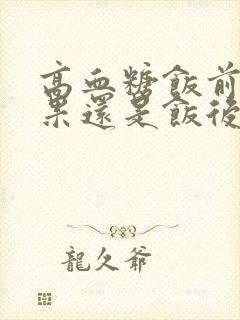 高血糖飯前
果還是飯後
龍久爺